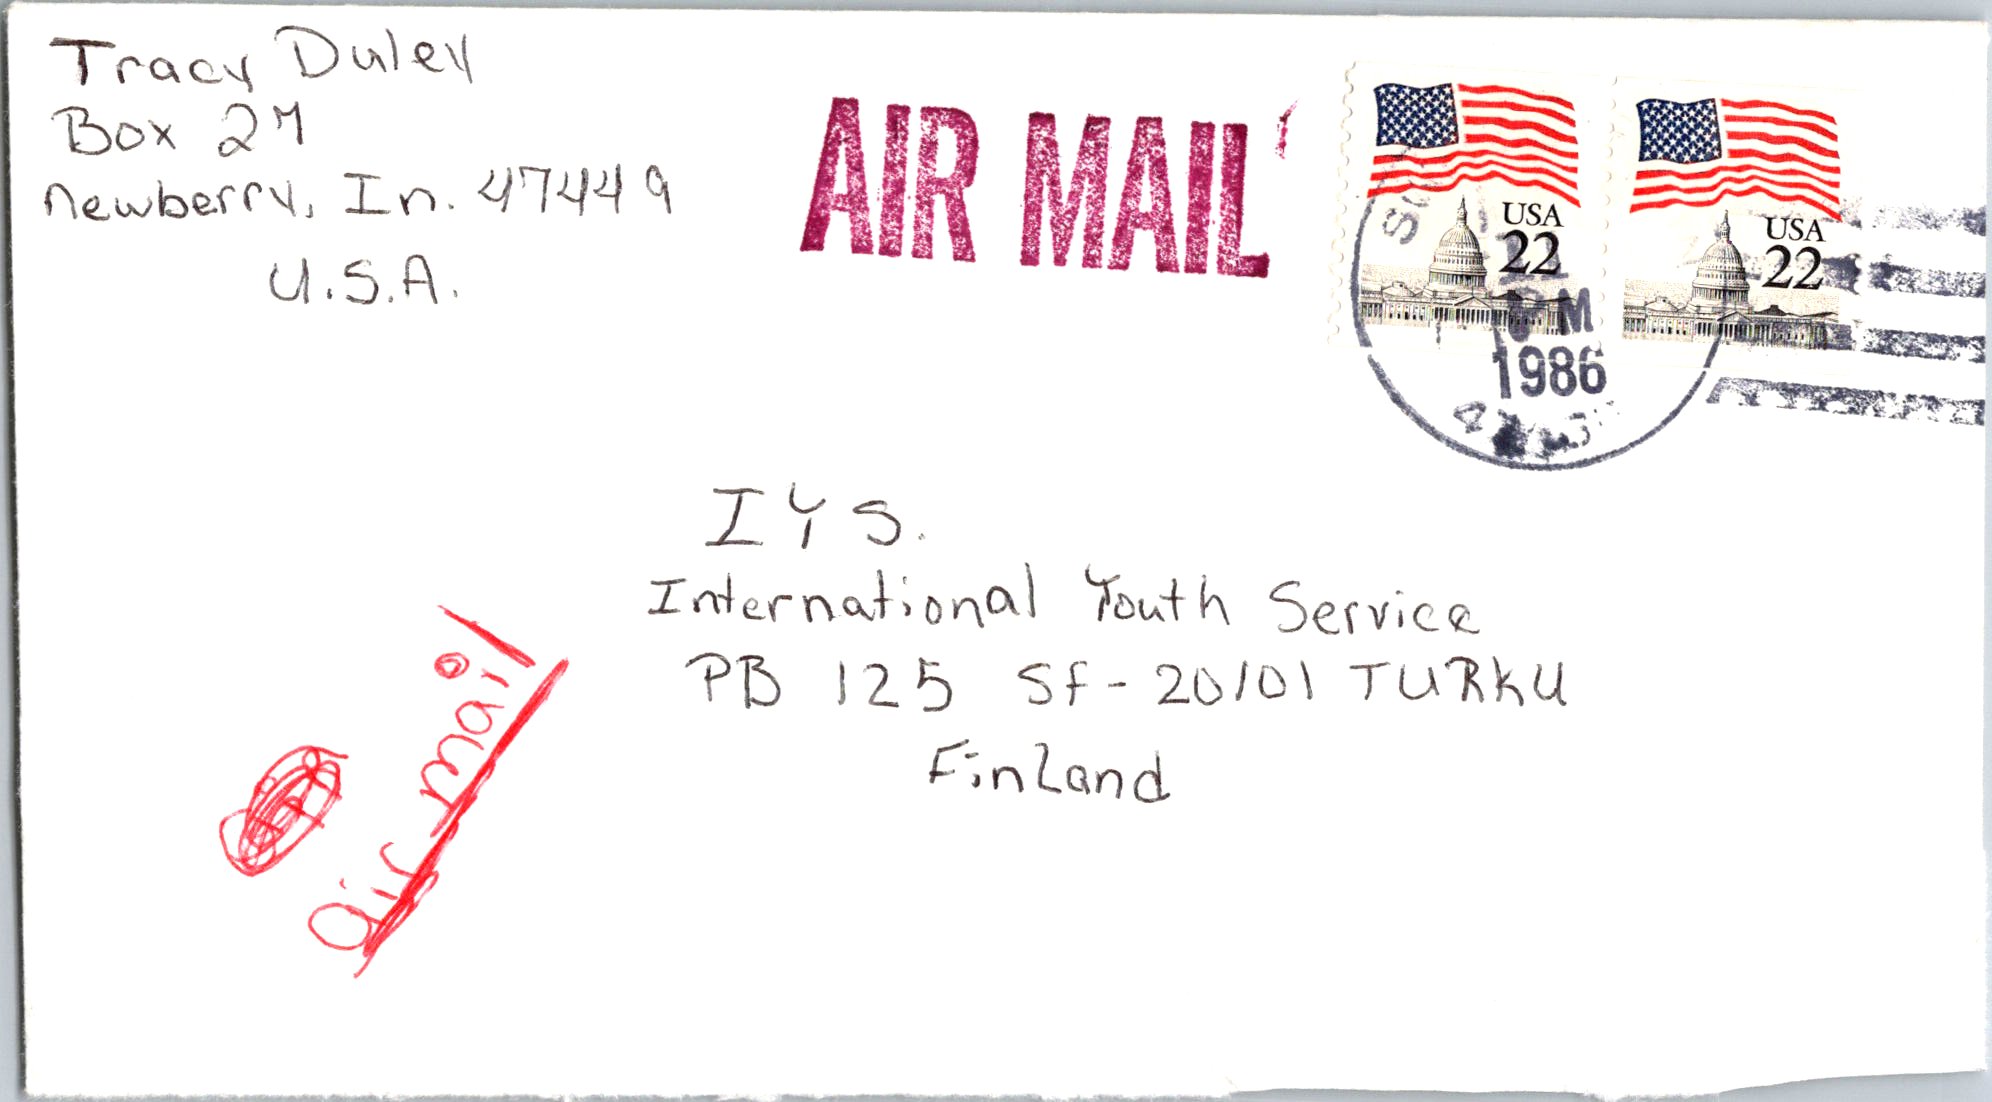 Tracy Duley
Box 27
Newberry, In. 47449
U.S.A.
AIR MAIL
USA
22
USA
22
PM
1986
I Y S.
International Youth Service
PB 125 SF-20101 TURKU
Finland
air mail